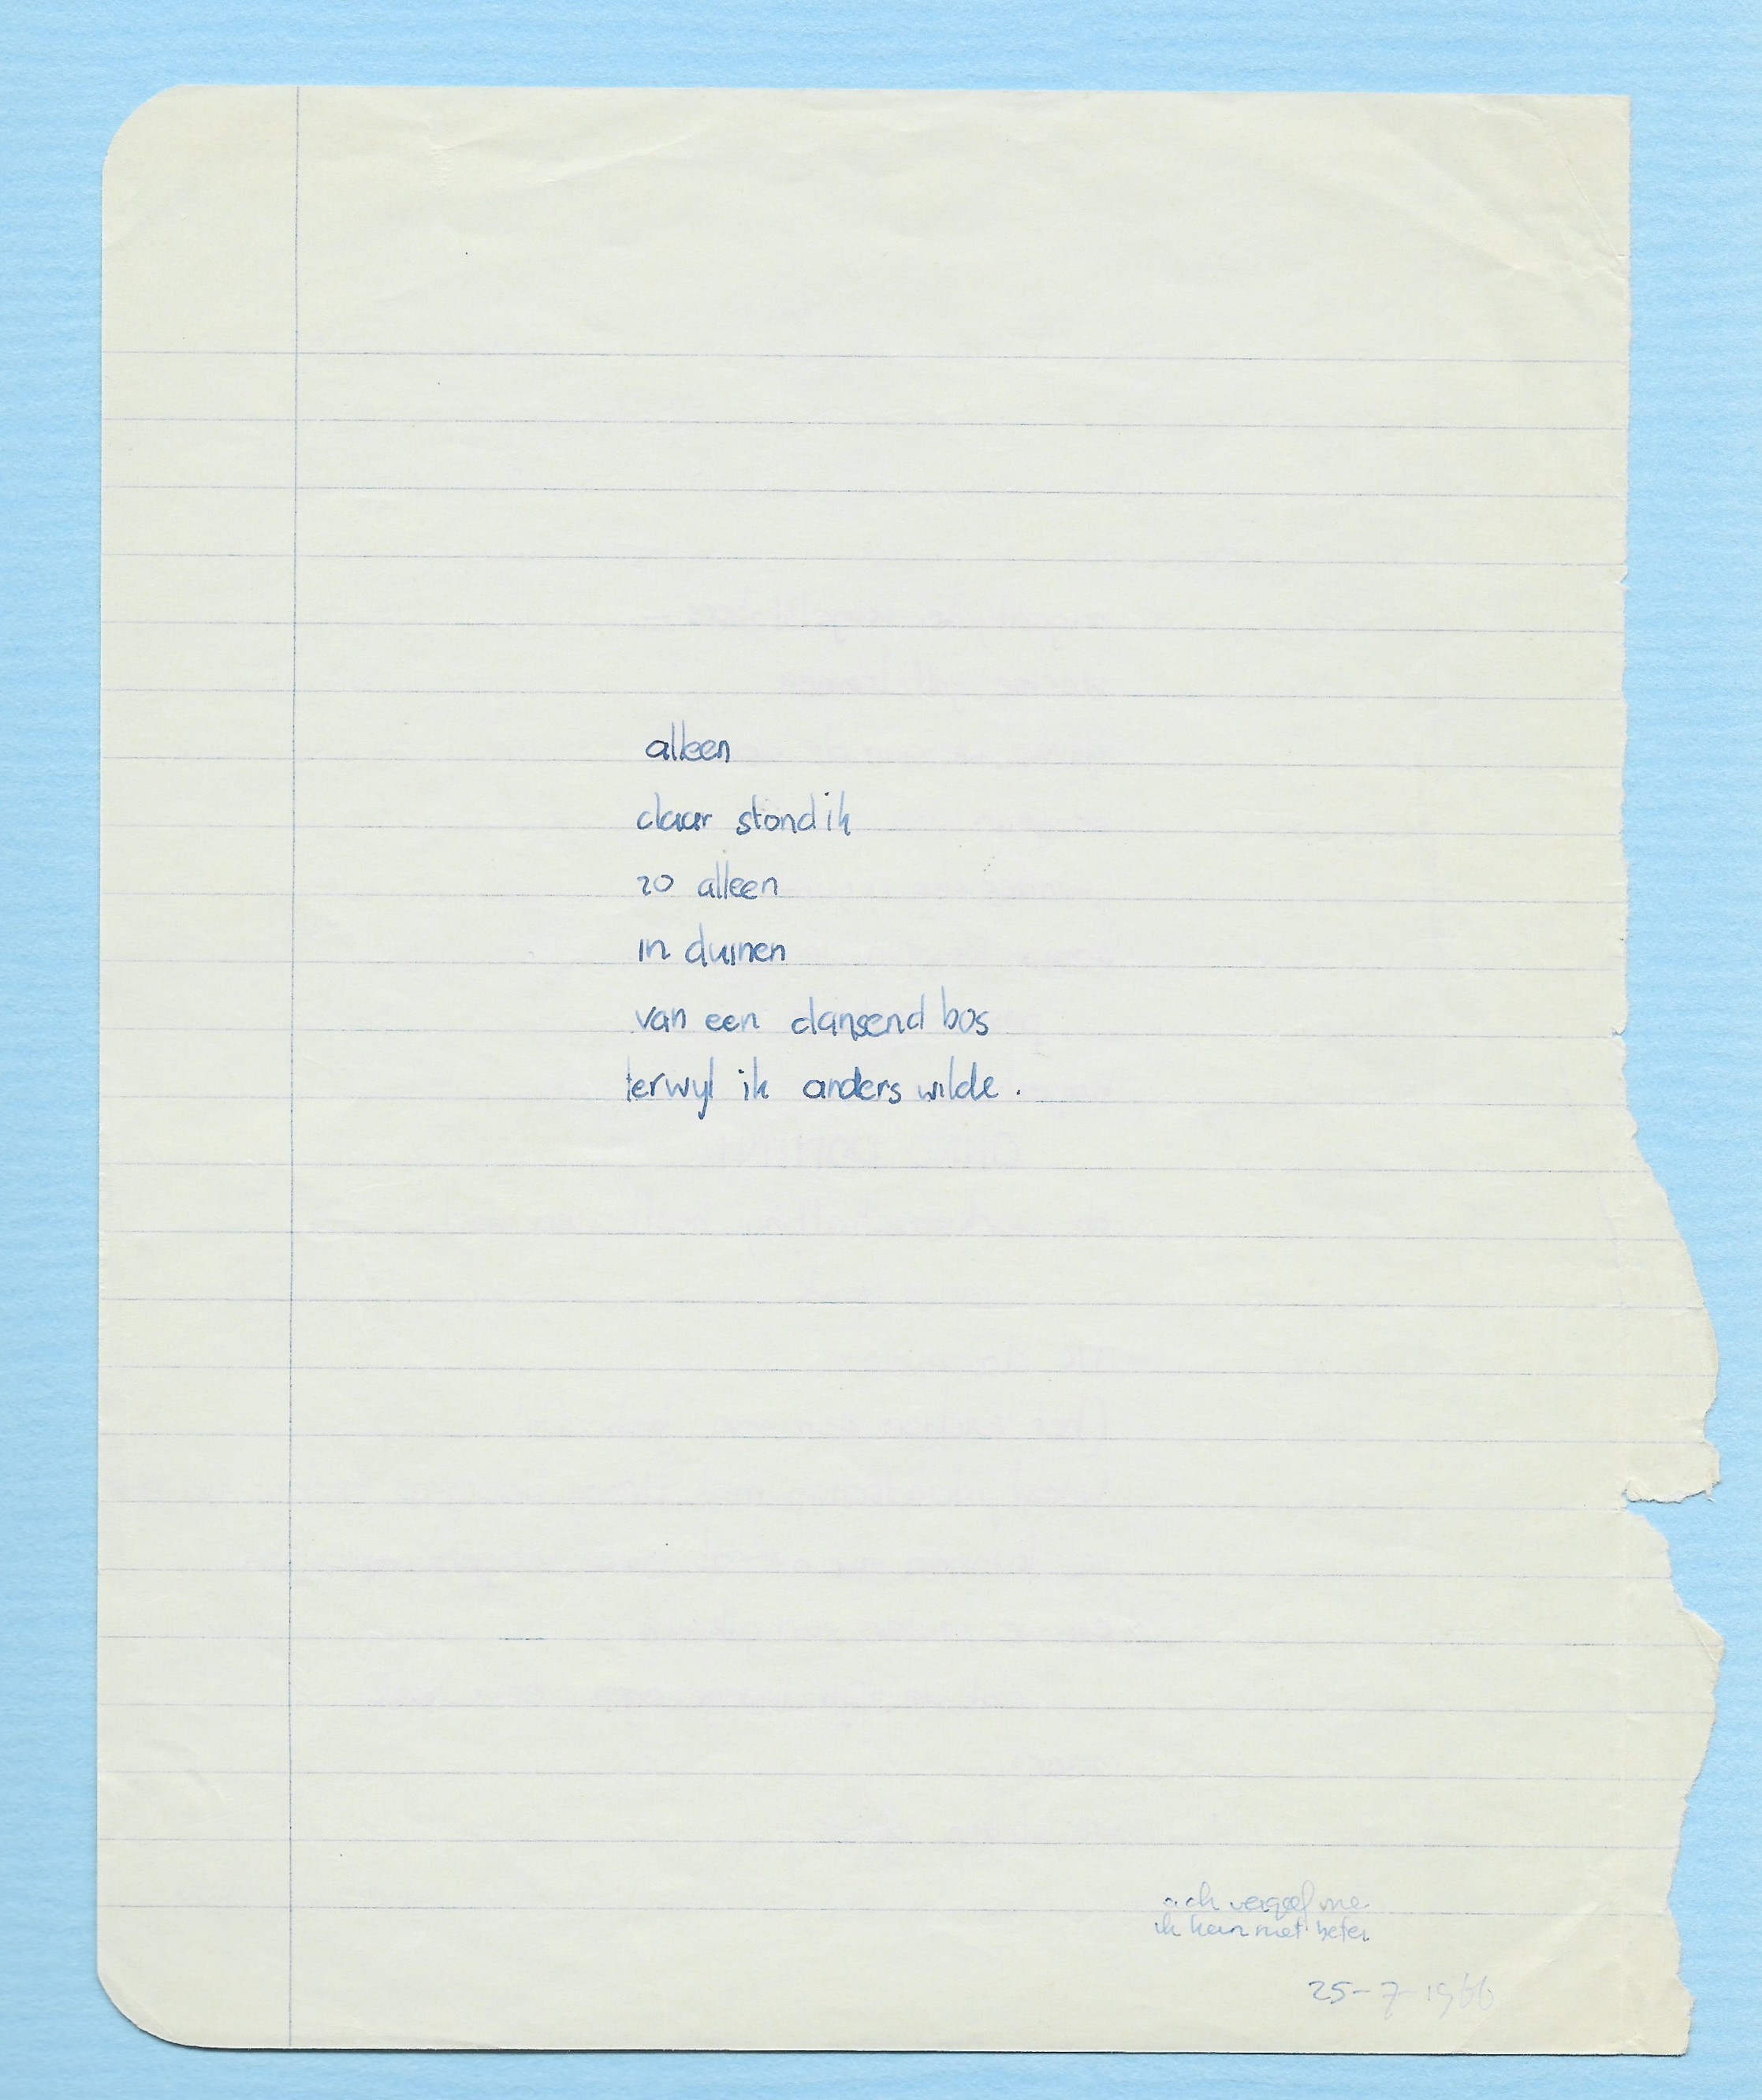 alleen
daar stond ik
zo alleen
in duinen
van een dansend bos
terwyl ik anders wilde.
ach vergeef me
ik kan niet beter
25-7-1966